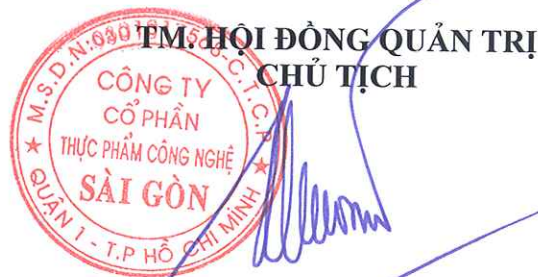 TM. HỘI ĐỒNG QUẢN TRỊ
CHỦ TỊCH
CÔNG TY
CỔ PHẦN
THỰC PHẨM CÔNG NGHỆ
SÀI GÒN
QUẬN 1 - T.P HỒ CHÍ MINH